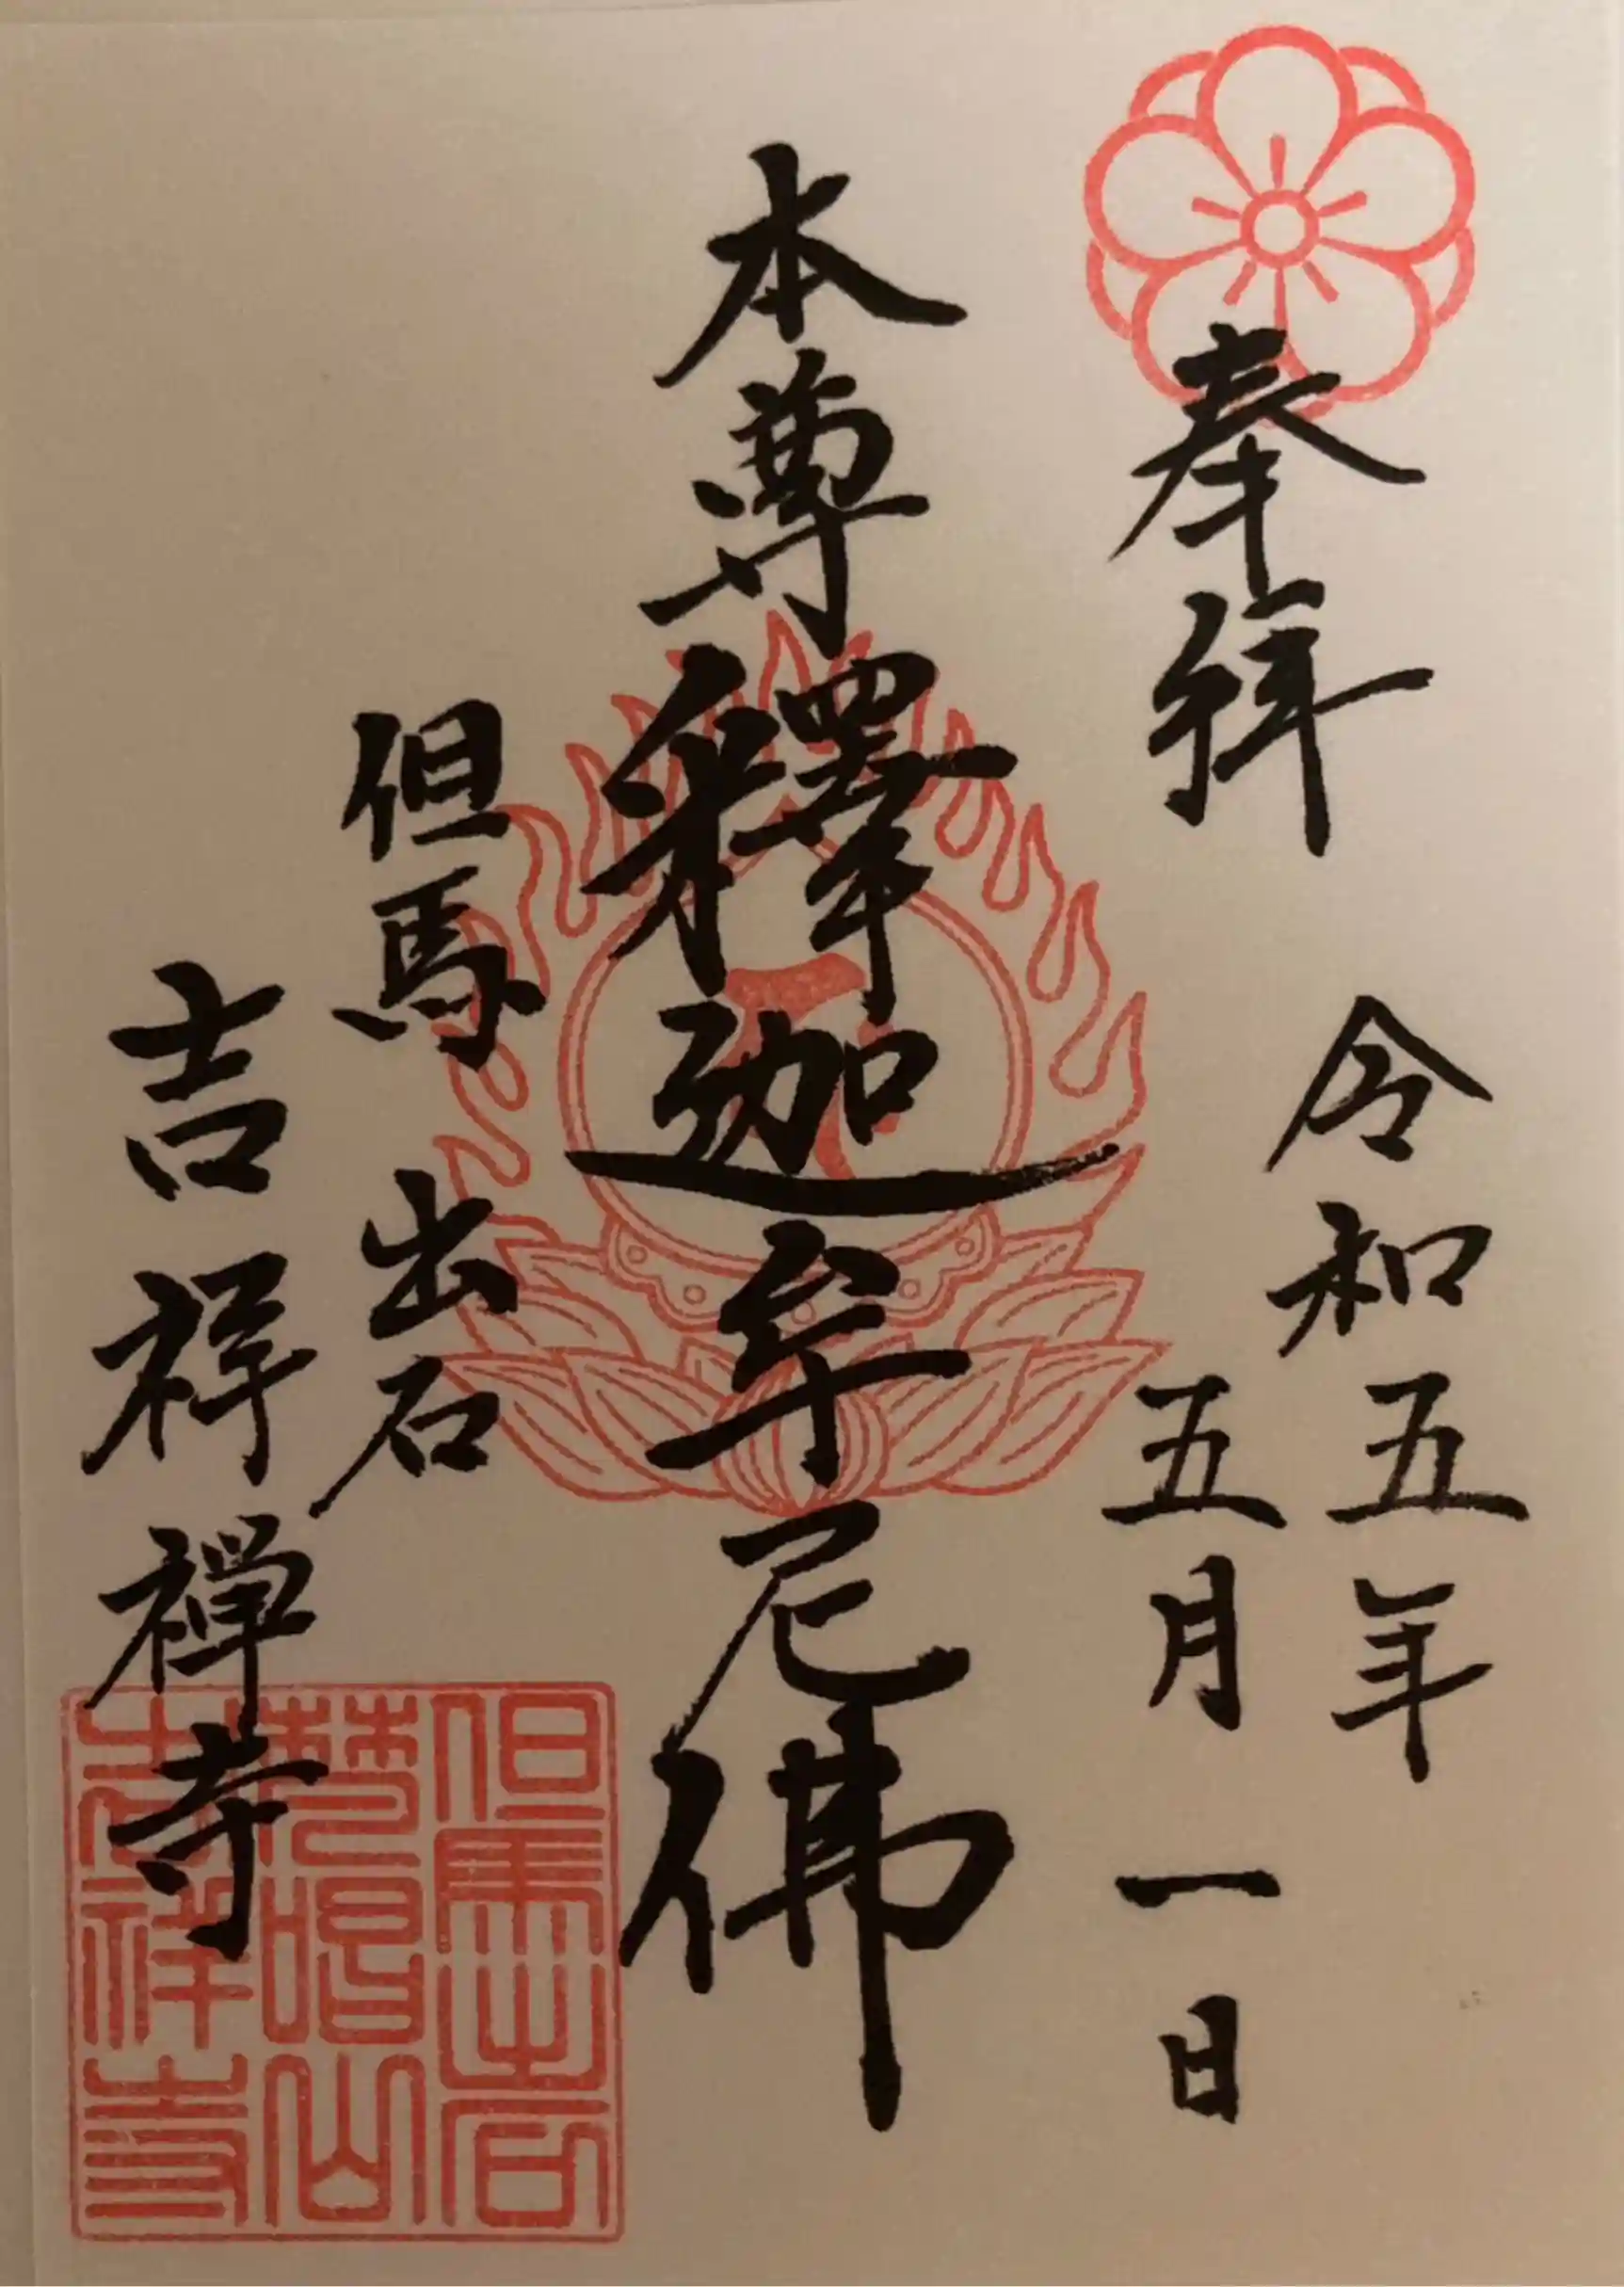 奉拝
令和五年
五月一日
本尊釋迦牟尼佛
但馬出石
吉祥禅寺
但馬出石
山
吉祥寺